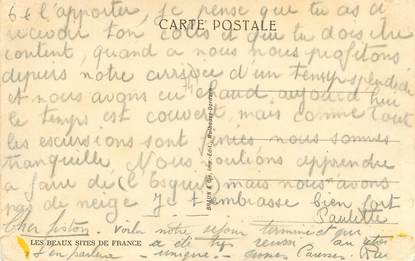 6 et l'apporter, je pense que tu as dû
CARTE POSTALE
recevoir ton colis et que tu dois être
content, quand a nous nous profitons
depuis notre arrivée d'un temps splendide
et nous avons eu chaud aujourd'hui
le temps est couvert mais comme tout
les excursions sont nous sommes
tranquille Nous voulions apprendre
a faire de (l'Esqui) mais nous avons
pas de neige Je t'embrasse bien fort
Paulette
Cher voila notre sejour terminé et qui
LES BEAUX SITES DE FRANCE a été au
unique Caresses